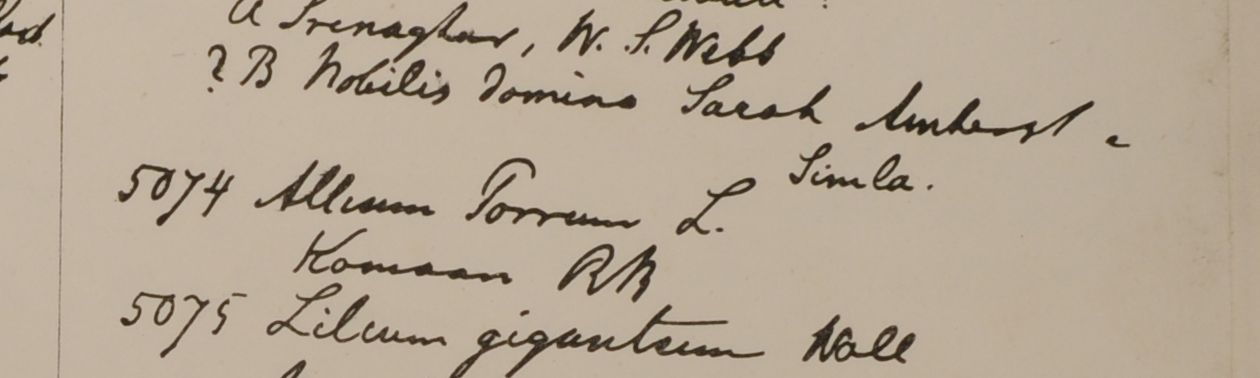 A Srenaghur, W. S. Webb
? B Nobilis domina Sarah Amherst -
Simla.
5074 Allium Porrum L.
Komaon RB
5075 Lilium giganteum Wall